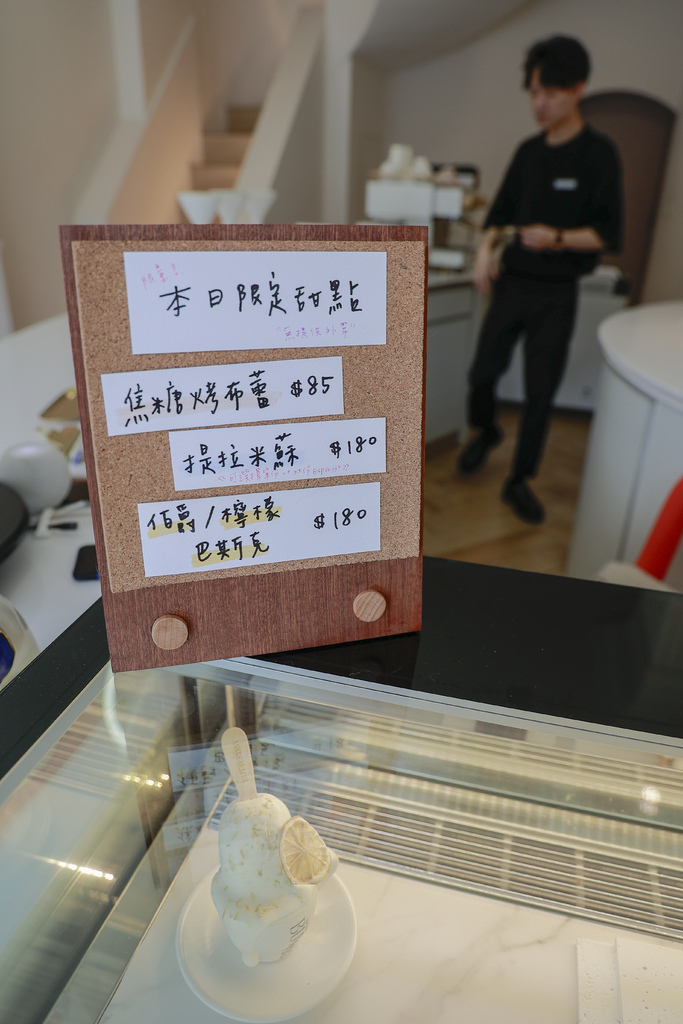 本日限定甜點
"無提供外帶"
焦糖烤布蕾 $85
提拉米蘇 $180
伯爵/檸檬 $180
巴斯克